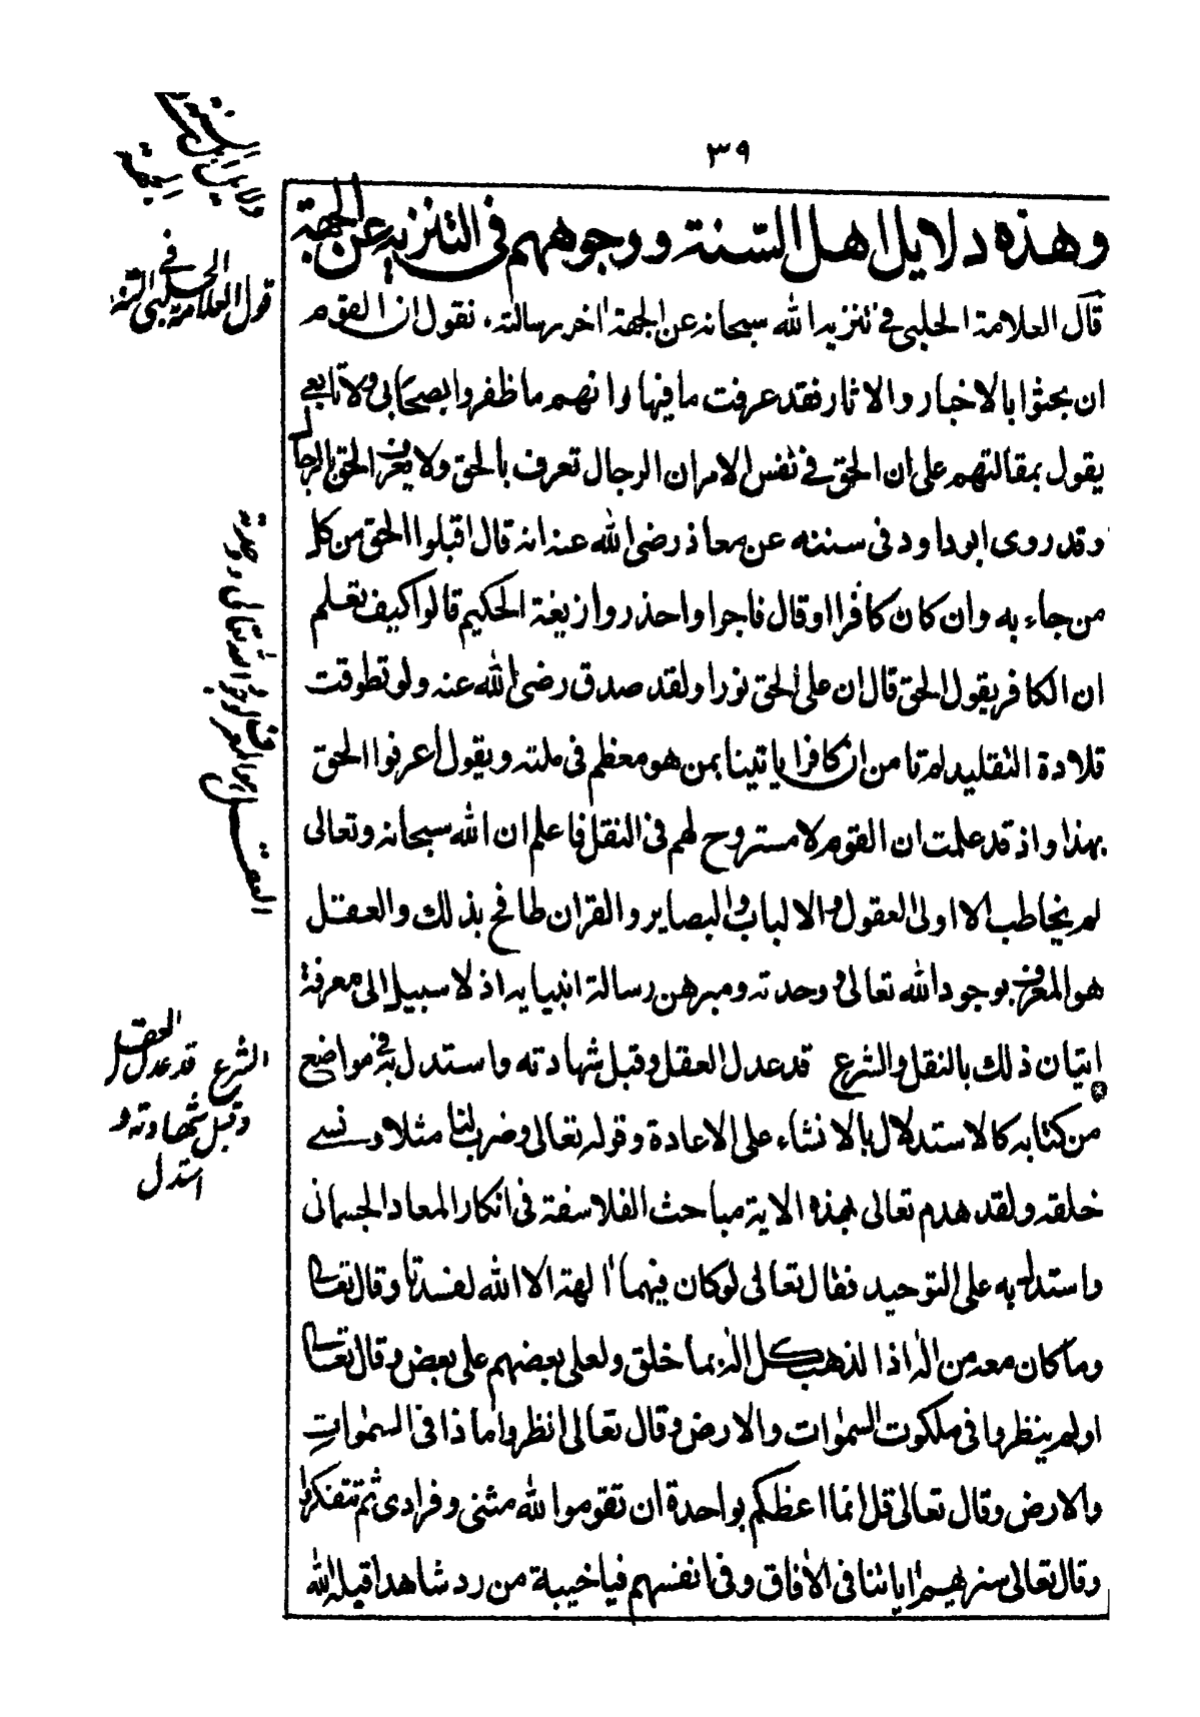 ٣٩
وهذه دلايل اهل السّنة ووجوههم فى التنزيه عن الجهة
قال العلامة الحلبى فى تنزيه الله سبحانه عن الجهة اخر رسالته، نقول ان القوم
ان بحثوا بالاخبار والاثار فقد عرفت ما فيها وانهم ما ظفروا بصحابى ولا تابعى
يقول بمقالتهم على ان الحق فى نفس الامر ان الرجال تعرف بالحق ولا يعرف الحق بالرجال
وقد روى ابو داود فى سننه عن معاذ رضى الله عنه انه قال اقبلوا الحق من كل
من جاء به وان كان كافرا او قال فاجرا واحذروا زيغة الحكيم قالوا كيف تعلم
ان الكافر يقول الحق قال ان على الحق نورا ولقد صدق رضى الله عنه ولو تطوقت
قلادة التقليد لم تامن ان كافرا ياتينا بمن هو معظم فى ملته ويقول اعرفوا الحق
بهذا واذ قد علمت ان القوم لا مستروح لهم فى النقل فاعلم ان الله سبحانه وتعالى
لم يخاطب الا اولى العقول والالباب والبصاير والقران طافح بذلك والعقل
هو المعرف بوجود الله تعالى ووحدته ومبرهن رسالة انبيايه اذ لا سبيل الى معرفة
اتيان ذلك بالنقل والشرع قد عدل العقل وقبل شهادته واستدل به فى مواضع
من كتابه كالاستدلال بالانشاء على الاعادة وقوله تعالى وضرب لنا مثلا ونسى
خلقه ولقد هدم تعالى بهذه الاية مباحث الفلاسفة فى انكار المعاد الجسمانى
واستدل به على التوحيد فقال تعالى لو كان فيهما الهة الا الله لفسدتا وقال تعالى
وما كان معه من اله اذا لذهب كل اله بما خلق ولعلى بعضهم على بعض وقال تعالى
اولم ينظروا فى ملكوت السموات والارض وقال تعالى انظروا ماذا فى السموات
والارض وقال تعالى قل انما اعظكم بواحدة ان تقوموا لله مثنى وفرادى ثم تتفكروا
وقال تعالى سنريهم اياتنا فى الافاق وفى انفسهم فيا خيبة من رد شاهدا قبله الله
قول العلامة الحلبى فى التنزيه
العقل
الشرع قد عدل
وقبل شهادته و
استدل